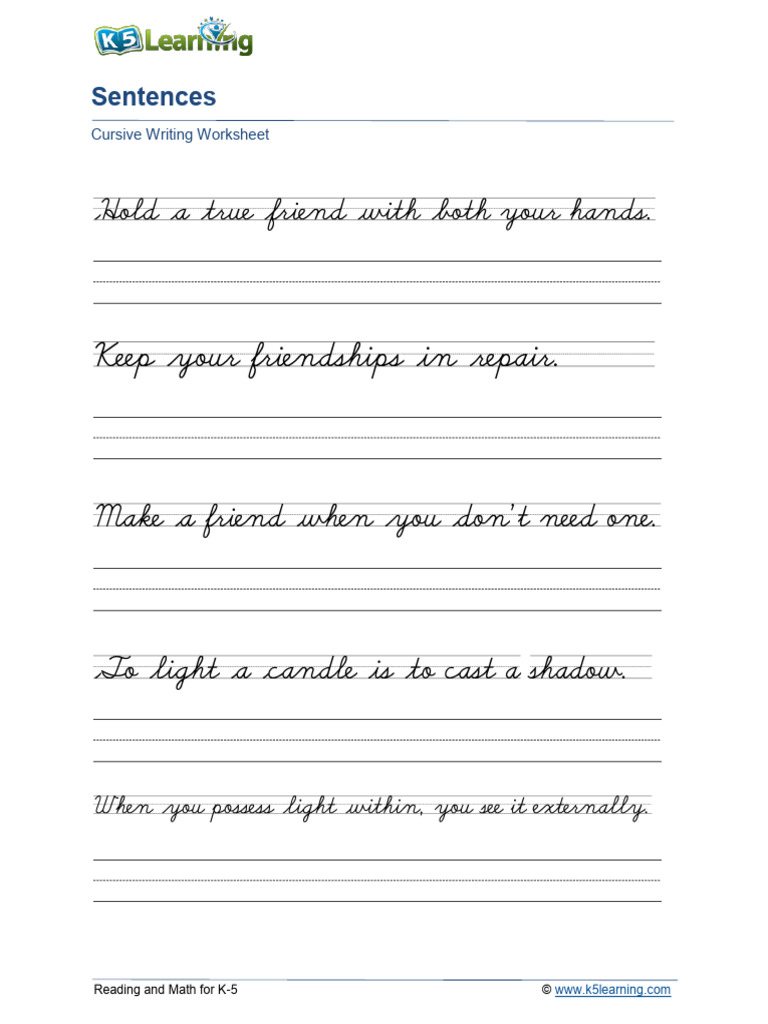 K5 Learning
Sentences
Cursive Writing Worksheet
Hold a true friend with both your hands.
Keep your friendships in repair.
Make a friend when you don't need one.
To light a candle is to cast a shadow.
When you possess light within, you see it externally.
Reading and Math for K-5 © www.k5learning.com